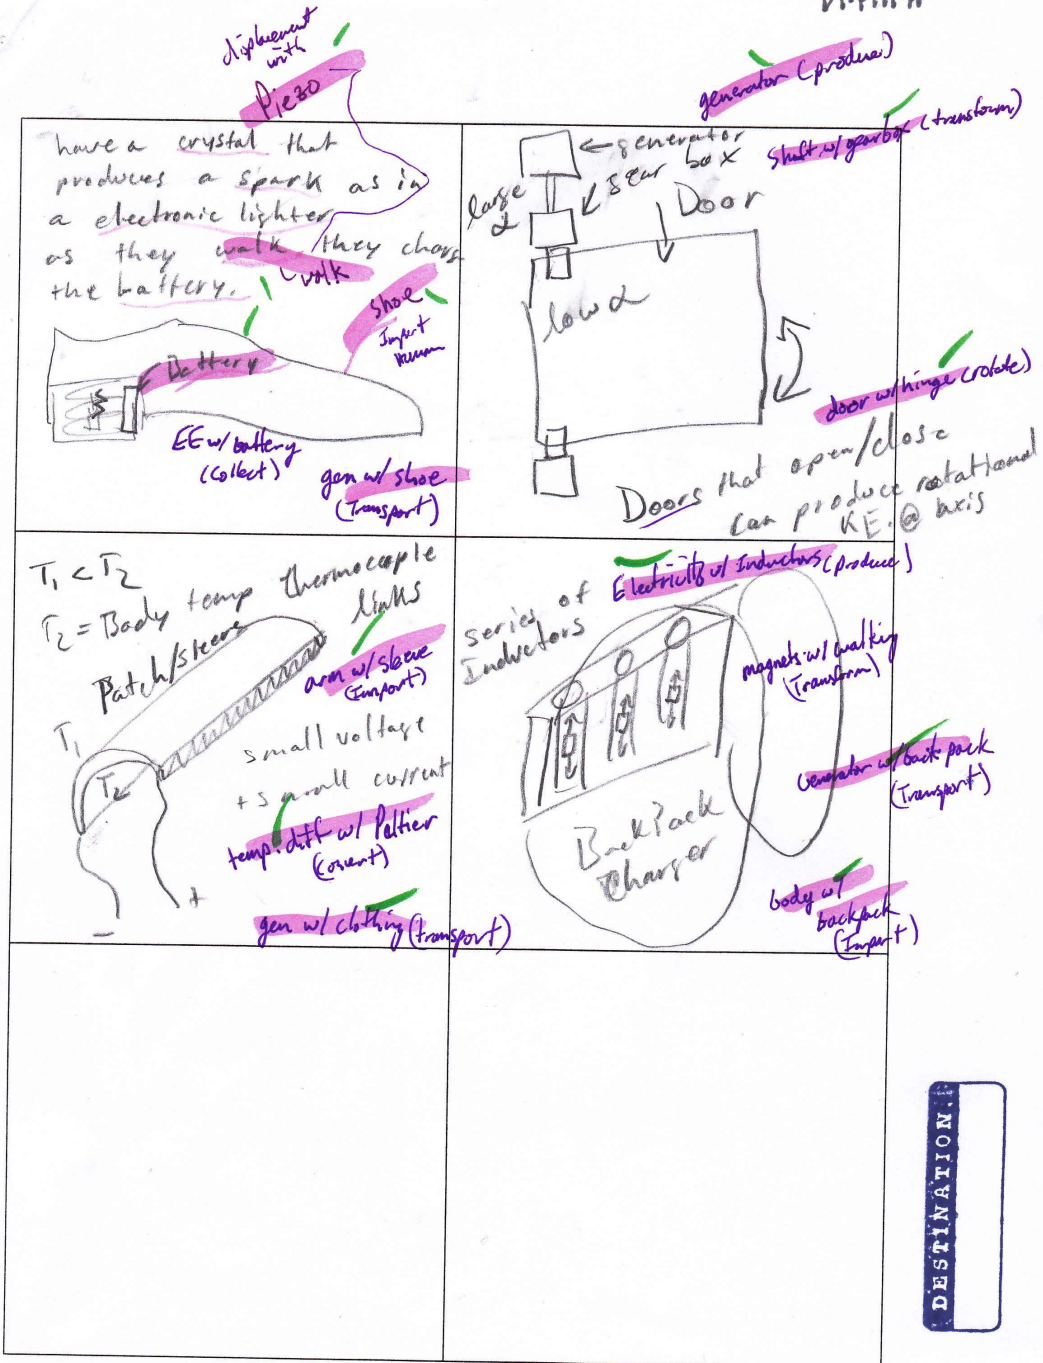 displacement
with
Piezo
have a crystal that
produces a spark as in
a electronic lighter
as they walk they charg
the battery.
walk
shoe
Import
human
Battery
EE w/ battery
(Collect)
gen w/ shoe
(Transport)
generator (produce)
shaft w/ gearbox (transform)
generator
gear box
large
α
Door
low α
door w/ hinge (rotate)
Doors that open/close
can produce rotational
KE. @ axis
T₁ < T₂
T₂ = Body temp thermocouple
links
Patch/sleeve
arm w/ sleeve
(Import)
T₁
T₂
small voltage
+ small current
temp. diff w/ Peltier
(Convert)
+
-
gen w/ clothing (transport)
series of
Inductors
Electricity w/ Inductors (produce)
magnets w/ walking
(Transform)
Generator w/ back pack
(Transport)
BackPack
Charger
body w/
backpack
(Import)
DESTINATION